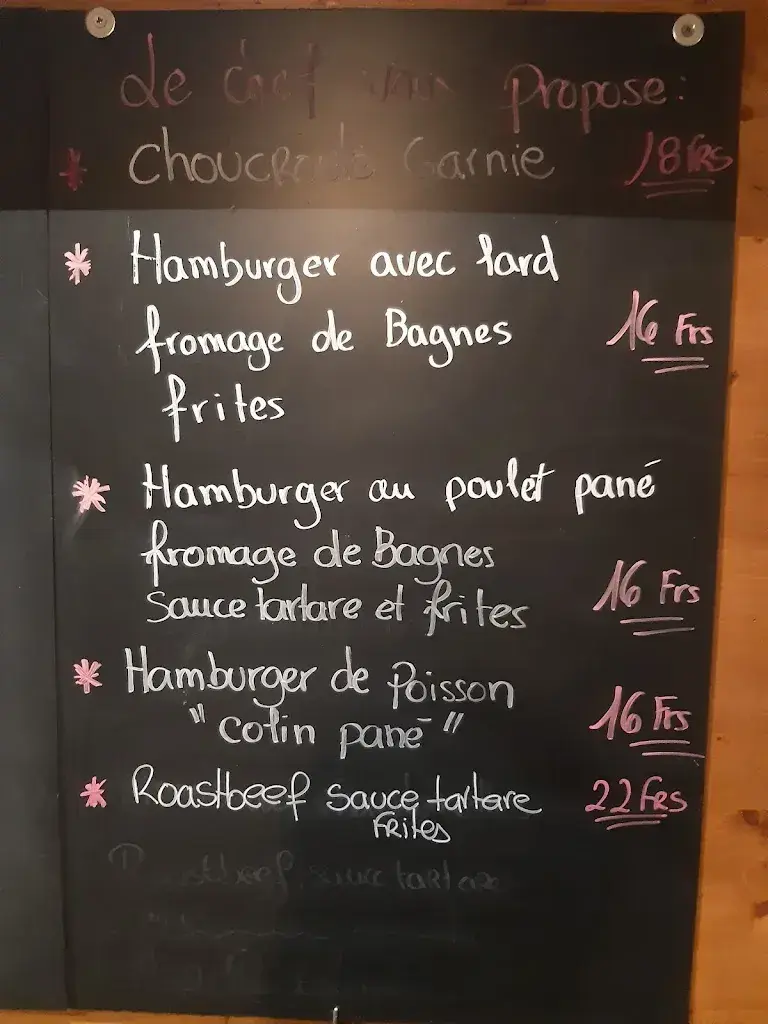 Le Chef vous propose:
* Choucroute Garnie 18 FRS
* Hamburger avec lard
fromage de Bagnes 16 Frs
frites
* Hamburger au poulet pané
fromage de Bagnes
sauce tartare et frites 16 Frs
* Hamburger de Poisson
"colin pané" 16 Frs
* Roastbeef sauce tartare 22 FRS
FRites
Roastbeef sauce tartare